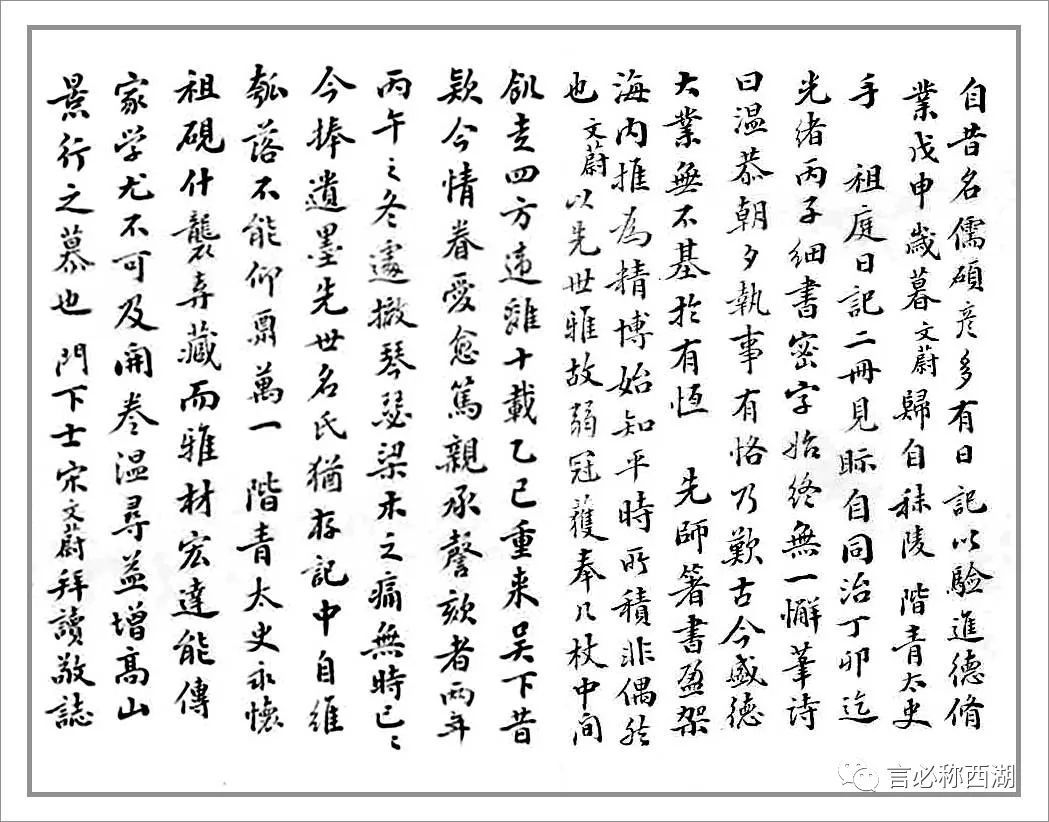 自昔名儒碩彦多有日記以驗進德脩
業戊申歲暮文蔚歸自秣陵 階青太史
手 祖庭日記二冊見眎自同治丁卯迄
光緒丙子細書密字始終無一懈筆詩
曰温恭朝夕執事有恪乃歎古今盛德
大業無不基於有恆 先師著書盈架
海内推為精博始知平時所積非偶然
也文蔚以先世雅故弱冠獲奉几杖中间
飢走四方違離十載乙巳重来吴下昔
欵今情眷愛愈篤親承謦欬者兩年
丙午之冬遽撤琴瑟梁木之痛無時已〻
今捧遺墨先世名氏猶存記中自維
瓠落不能仰 萬一 階青太史永懷
祖硯什襲弆藏而雅材宏達能傳
家学尤不可及開卷温尋益增髙山
景行之慕也門下士宋文蔚拜讀敬誌
言必称西湖